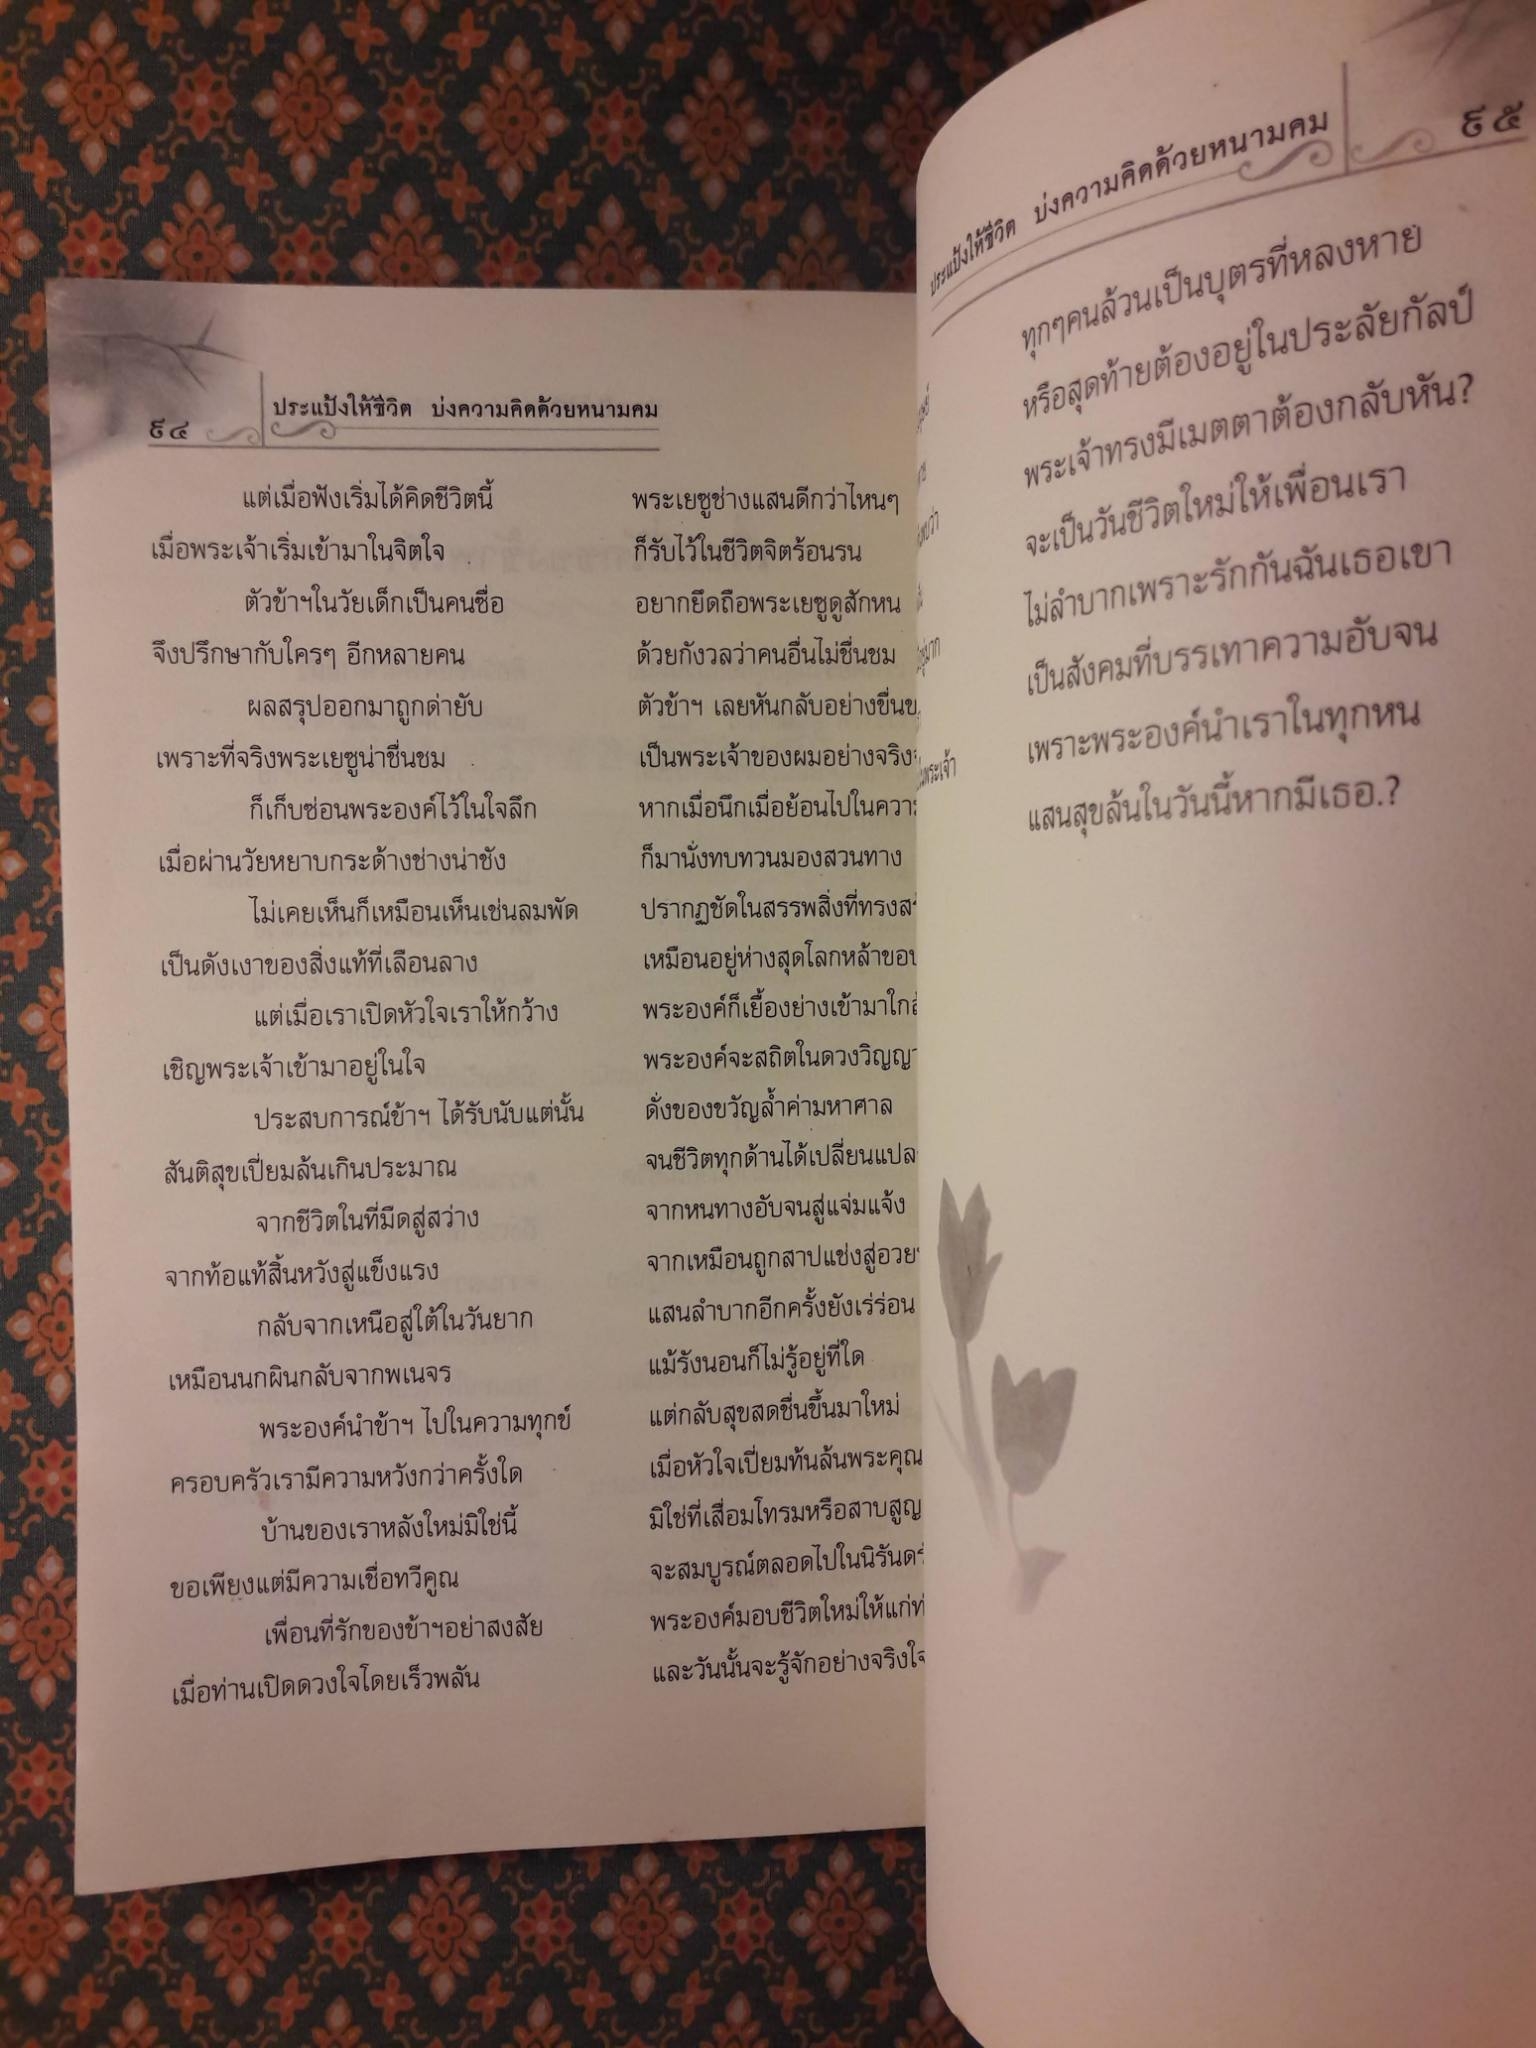 ๙๔
ประแป้งให้ชีวิต บ่งความคิดด้วยหนามคม
แต่เมื่อฟังเริ่มได้คิดชีวิตนี้ พระเยซูช่างแสนดีกว่าไหนๆ
เมื่อพระเจ้าเริ่มเข้ามาในจิตใจ ก็รับไว้ในชีวิตจิตร้อนรน
ตัวข้าฯในวัยเด็กเป็นคนซื่อ อยากยึดถือพระเยซูดูสักหน
จึงปรึกษากับใครๆ อีกหลายคน ด้วยกังวลว่าคนอื่นไม่ชื่นชม
ผลสรุปออกมาถูกด่ายับ ตัวข้าฯ เลยหันกลับอย่าง
เพราะที่จริงพระเยซูน่าชื่นชม เป็นพระเจ้าของผมอย่างจริง
ก็เก็บซ่อนพระองค์ไว้ในใจลึก หากเมื่อนึกเมื่อย้อนไปใน
เมื่อผ่านวัยหยาบกระด้างช่างน่าชัง ก็มานั่งทบทวนมองสวนทาง
ไม่เคยเห็นก็เหมือนเห็นเช่นลมพัด ปรากฏชัดในสรรพสิ่งที่ทรง
เป็นดังเงาของสิ่งแท้ที่เลือนลาง เหมือนอยู่ห่างสุดโลกหล้า
แต่เมื่อเราเปิดหัวใจเราให้กว้าง พระองค์ก็เยื้องย่างเข้ามา
เชิญพระเจ้าเข้ามาอยู่ในใจ พระองค์จะสถิตในดวง
ประสบการณ์ข้าฯ ได้รับนับแต่นั้น ดั่งของขวัญล้ำค่ามหาศาล
สันติสุขเปี่ยมล้นเกินประมาณ จนชีวิตทุกด้านได้
จากชีวิตในที่มืดสู่สว่าง จากหนทางอับจนสู่แจ่มแจ้ง
จากท้อแท้สิ้นหวังสู่แข็งแรง จากเหมือนถูกสาปแช่งสู่
กลับจากเหนือสู่ใต้ในวันยาก แสนลำบากอีกครั้งยังเร่ร่อน
เหมือนนกผินกลับจากพเนจร แม้รังนอนก็ไม่รู้อยู่ที่ใด
พระองค์นำข้าฯ ไปในความทุกข์ แต่กลับสุขสดชื่นขึ้นมาใหม่
ครอบครัวเรามีความหวังกว่าครั้งใด เมื่อหัวใจเปี่ยมท้นล้นพระคุณ
บ้านของเราหลังใหม่มิใช่นี้ มิใช่ที่เสื่อมโทรมหรือสาบสูญ
ขอเพียงแต่มีความเชื่อทวีคูณ จะสมบูรณ์ตลอดไปใน
เพื่อนที่รักของข้าฯอย่าสงสัย พระองค์มอบชีวิตใหม่ให้แก่
เมื่อท่านเปิดดวงใจโดยเร็วพลัน และวันนั้นจะรู้จักอย่าง
ประแป้งให้ชีวิต บ่งความคิดด้วยหนามคม
๙๕
ทุกๆคนล้วนเป็นบุตรที่หลงหาย
หรือสุดท้ายต้องอยู่ในประลัยกัลป์
พระเจ้าทรงมีเมตตาต้องกลับหัน?
จะเป็นวันชีวิตใหม่ให้เพื่อนเรา
ไม่ลำบากเพราะรักกันฉันเธอเขา
เป็นสังคมที่บรรเทาความอับจน
เพราะพระองค์นำเราในทุกหน
แสนสุขล้นในวันนี้หากมีเธอ.?